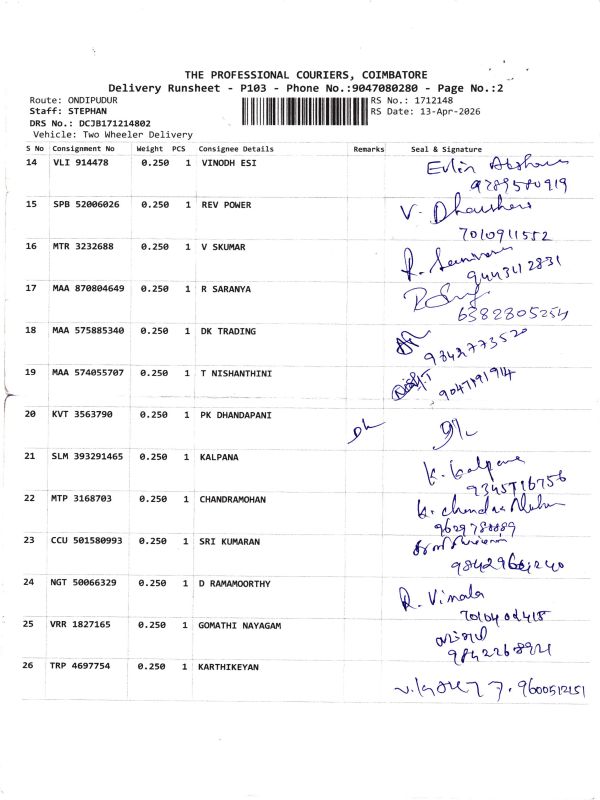 THE PROFESSIONAL COURIERS, COIMBATORE
Delivery Runsheet - P103 - Phone No.:9047080280 - Page No.:2
Route: ONDIPUDUR RS No.: 1712148
Staff: STEPHAN RS Date: 13-Apr-2026
DRS No.: DCJB171214802
Vehicle: Two Wheeler Delivery
S No Consignment No Weight PCS Consignee Details Remarks Seal & Signature
14 VLI 914478 0.250 1 VINODH ESI Evlin
9789580919
15 SPB 52006026 0.250 1 REV POWER V.
7010911552
16 MTR 3232688 0.250 1 V SKUMAR R.
9443112831
17 MAA 870804649 0.250 1 R SARANYA
6382805254
18 MAA 575885340 0.250 1 DK TRADING
9842773520
19 MAA 574055707 0.250 1 T NISHANTHINI
20 KVT 3563790 0.250 1 PK DHANDAPANI
21 SLM 393291465 0.250 1 KALPANA K. Kalpana
9345716756
22 MTP 3168703 0.250 1 CHANDRAMOHAN K. Chandra Mohan
9629788889
23 CCU 501580993 0.250 1 SRI KUMARAN
24 NGT 50066329 0.250 1 D RAMAMOORTHY R. Vimala
25 VRR 1827165 0.250 1 GOMATHI NAYAGAM
9842268921
26 TRP 4697754 0.250 1 KARTHIKEYAN 9600512151